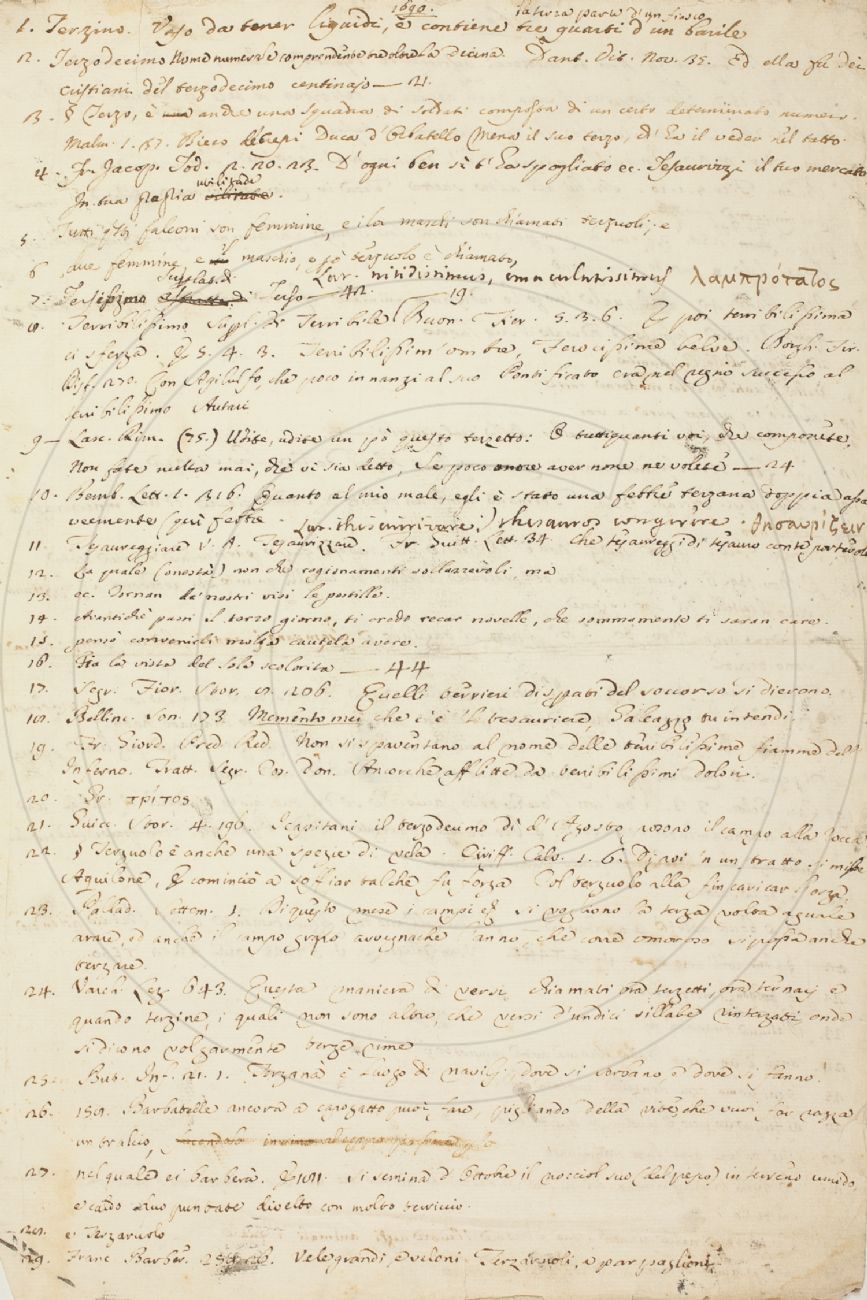 1690.
la terza parte d'un fiasco
1. Terzino. Vaso da tener liquidi, e contiene tre quarti d'un barile
2. Terzodecimo Nome numerale comprendente tre oltre la decina. Dant. Vit. Nov. 35. Ed ella fu dei
cristiani del terzodecimo centinajo — 4.
3. § Terzo, è anche una squadra di soldati composta di un certo determinato numero.
Malm. 1. 57. Duca d'Orbatello Mena il suo terzo, ch' ha il veder nel tatto.
4. Fr. Jacop. Tod. 2. 20. 23. D'ogni ben si t' ha spogliato ec. Tesaurizzi il tuo mercato
In tua
5. Tutti falconi son femmine, e i lor maschi son chiamati terzuoli; e
6 due femmine, e il maschio, e però terzuolo è chiamato,
Superlat. di Lat. nitidissimus, emaculatissimus λαμπρότατος
7. Tersissimo Terso — 42. — 19.
8. Terribilissimo Superl. di Terribile Buon. Fier. 5. 3. 6. E poi terribilissima
ci sferza. E 5. 4. 3. Terribilissim' ombre, ferocissime belve. Borgh. Fir.
Disf. 270. Con Agilulfo, che poco innanzi al suo Pontificato era nel regno successo al
terribilissimo Autari
9 — Lasc. Rim. (75.) Udite, udite un pò questo terzetto: O tuttiquanti voi, che componete,
Non fate nulla mai, che vi sia detto, Se poco onore aver non ne volete — 24
10. Bemb. Lett. 1. 316. Quanto al mio male, egli è stato una febbre terzana doppia assai
veemente (qui febbre Lat. thesaurizare;) thesauros congerere. θησαυρίζειν
11. Tesaureggiare V. A. Tesaurizzare. Fr. Guitt. Lett. 34. Che tesaureggi di tesauro
12. La quale (onestà) non che ragionamenti sollazzevoli, ma
13. ec. Tornan de' nostri visi le postille.
14. Avantichè passi il terzo giorno, ti credo recar novelle, che sommamente ti saran care.
15. pensò convenirli molta cautela avere.
16. Fia la vista del sole scolorita — 44
17. Segr. Fior. Stor. 8. 206. Quelli terrieri disperati del soccorso si dierono.
18. Bellinc. Son. 173. Memento mei che c'è 'l tesauriere, Galeazzo tu intendi.
19. Fr. Giord. Pred. Red. Non si spaventano al nome delle terribilissime fiamme dell'
Inferno. Tratt. Segr. Cos. Don. Ancorchè afflitte da terribilissimi dolori.
20. Gr. τρίτος
21. Guicc. Stor. 4. 196. I capitani il terzodecimo dì d'Agosto posono il campo alla rocca
22. § Terzuolo è anche una spezie di vela. Ciriff. Calv. 1. 6. Dipoi in un tratto si misse
Aquilone, E cominciò a soffiar talchè fu forza Col terzuolo alla fin caricar l'orza.
23. Pallad. Settem. 1. Di questo mese i campi si vogliono la terza volta aguale
arare, ed anche il campo grasso avvegnachè l'anno, che corre omoroso si possa anche
terzare.
24. Varch. Lez. 643. Questa maniera di versi, chiamati ora terzetti, ora ternarj e
quando terzine, i quali non sono altro, che versi d'undici sillabe rinterzati onde
si dicono volgarmente terze rime
25. But. Inf. 21. 1. Terzanà è luogo di navilj, dove si serbano, e dove si fanno.
26. 159. Barbatelle ancora a capogatto puoi fare, pigliando della vite, che vuoi far razza
un tralcio,
27. nel quale ei barberà. si semina d'Ottobre il nocciol suo (del pepo) in terreno umido
e caldo divelto con molto terriccio.
28. e Terzaruolo
29. Franc. Barber. Vele grandi, e veloni Terzaruoli, e parpaglioni